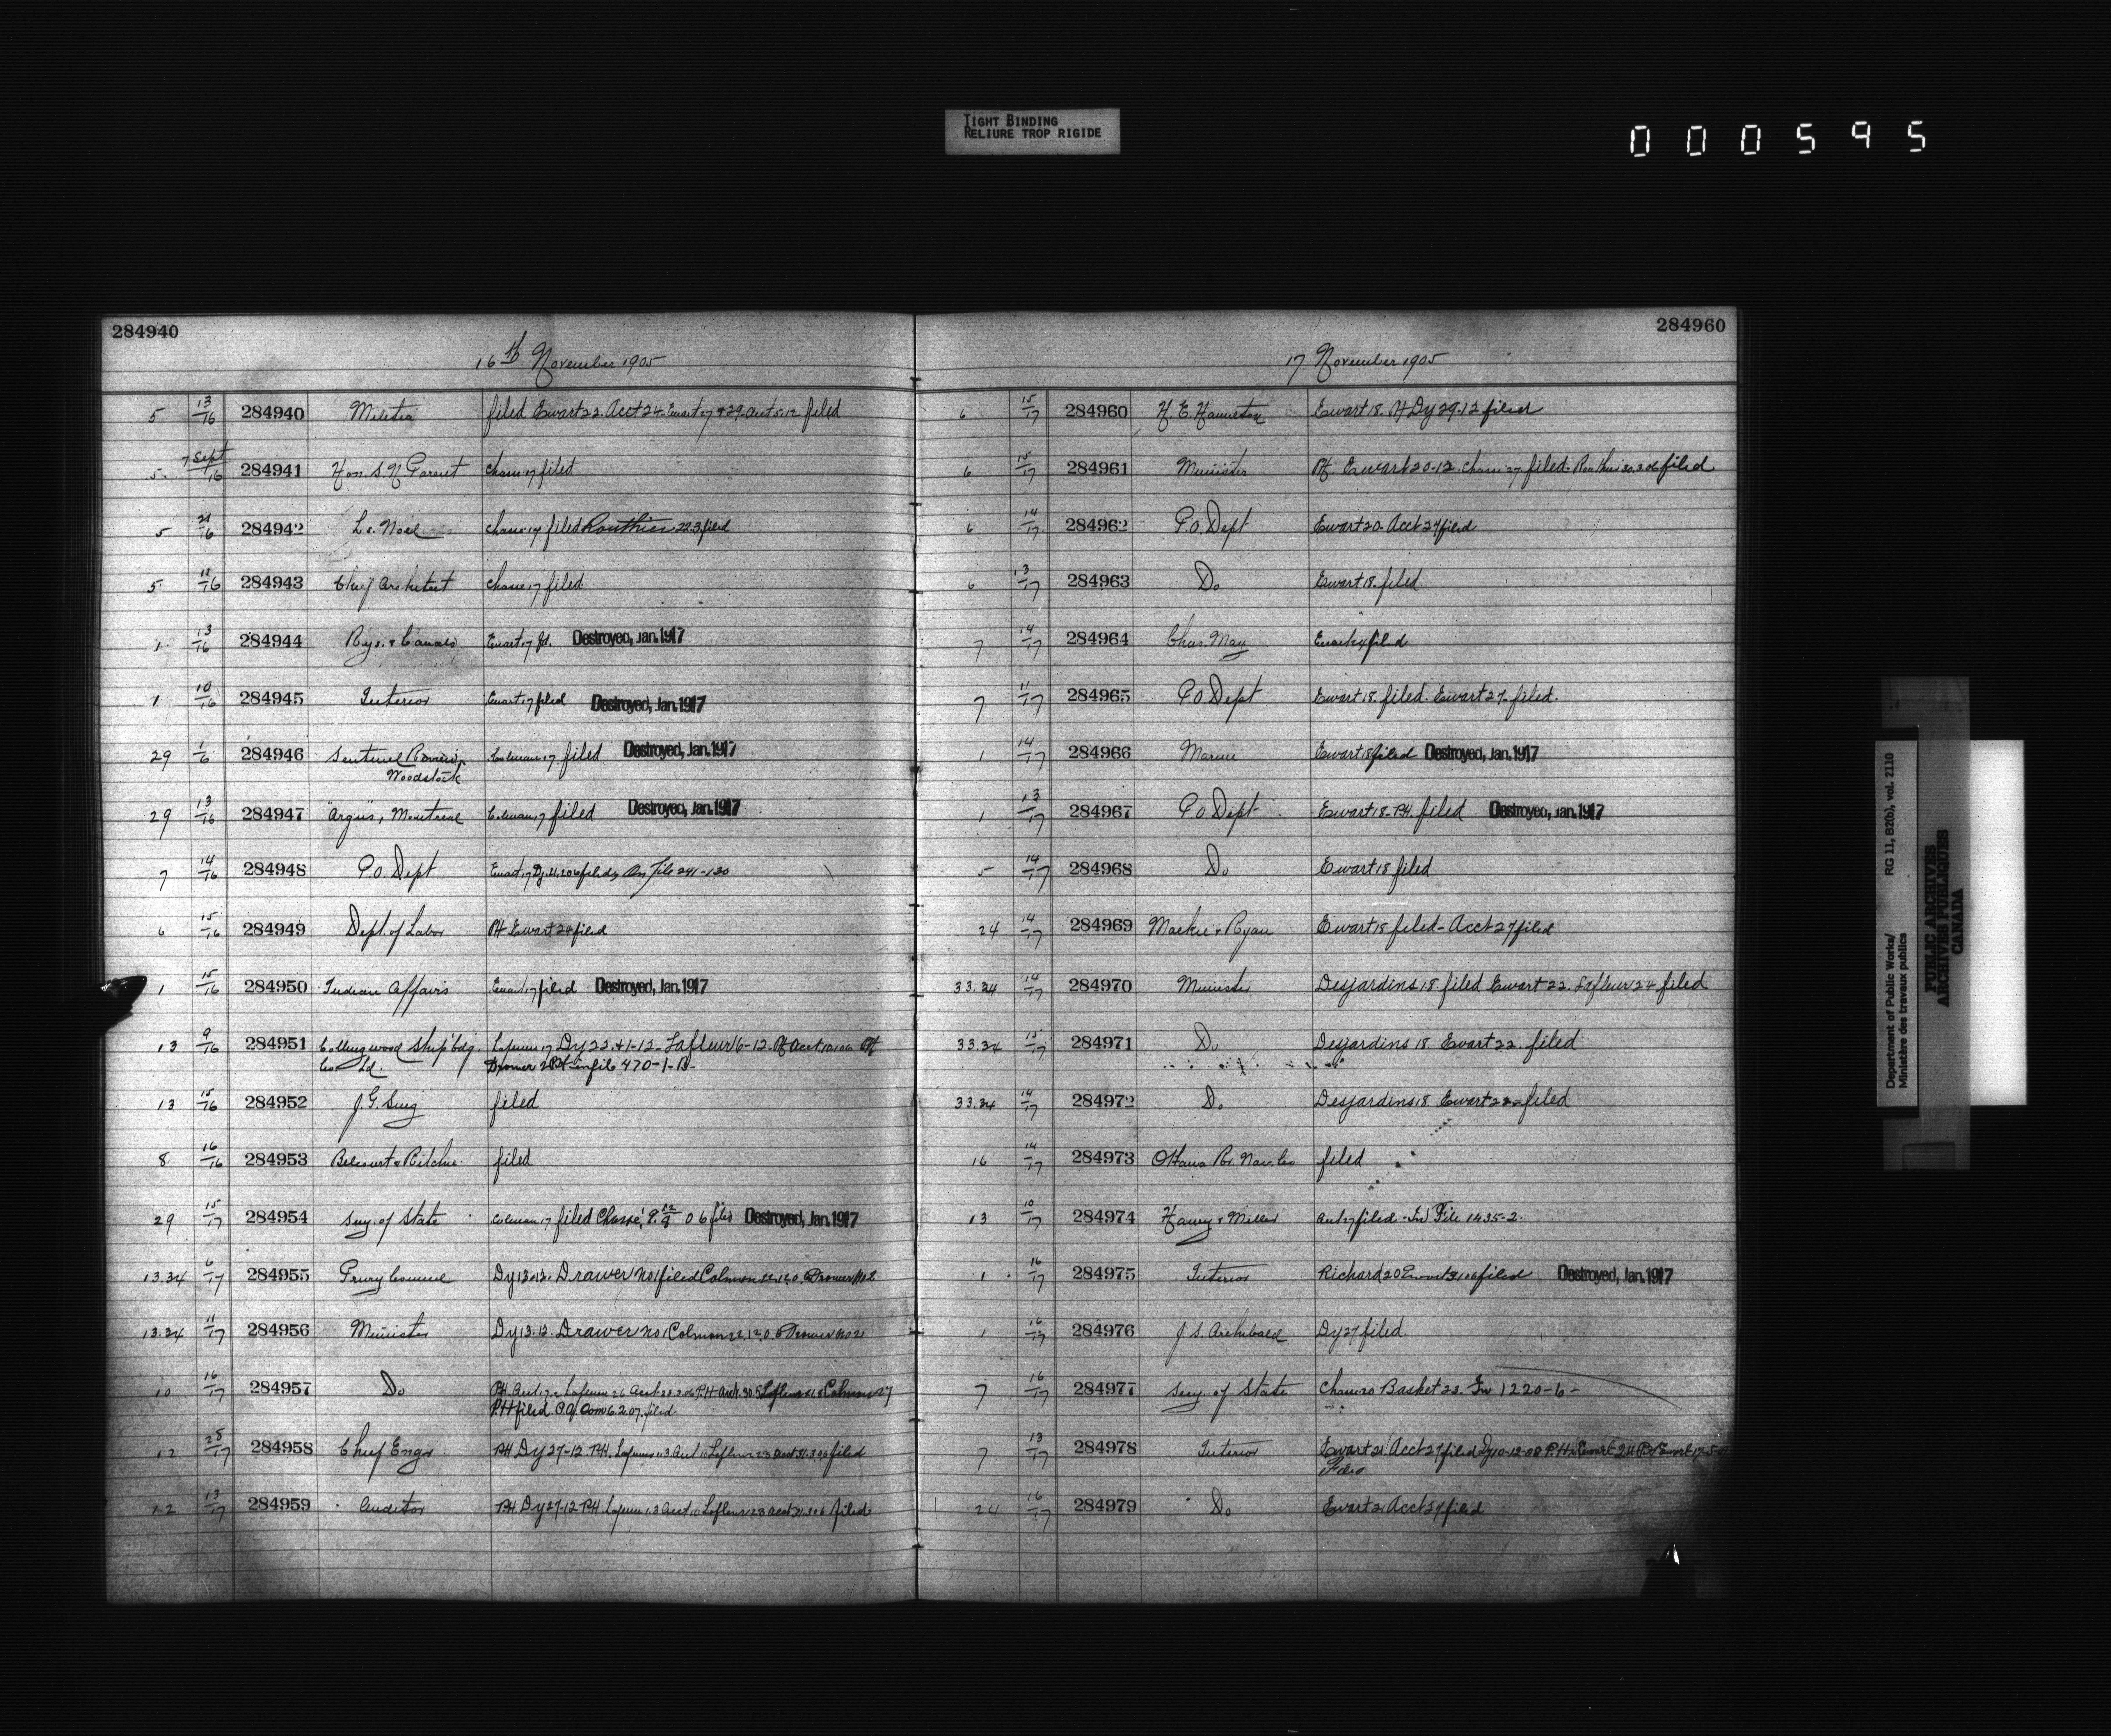 TIGHT BINDING
RELIURE TROP RIGIDE
000595
284940
16th November 1905
5 13/16 284940 Militia filed Ewart 22. Acct 24. Ewart 27 & 29. Acct 5.12 filed
5. 7 Sept/16 284941 Hon. S. N. Parent filed
5 21/16 284942 Ls. Noel filed Routhier 22.3 filed
5 15/16 284943 Chief Architect filed.
1 13/16 284944 Rys. & Canals Ewart 17 fd. Destroyed, Jan. 1917
1 10/16 284945 Interior Ewart 17 filed Destroyed, Jan. 1917
29 1/6 284946 Sentinel Review, Colman 17 filed Destroyed, Jan. 1917
Woodstock
29 13/16 284947 "Argus", Montreal Colman 17 filed Destroyed, Jan. 1917
7 14/16 284948 P.O. Dept Ewart 17 On File 241-130
6 15/16 284949 Dept. of Labor PH Ewart 24 filed
1 15/16 284950 Indian Affairs Ewart 17 filed Destroyed, Jan. 1917
13 9/16 284951 Collingwood Ship'bdg. Lafleur 17 Dy 22 & 1-12. Lafleur 6-12.
Co Ld. 470-1-B-
13 15/16 284952 J. G. filed
8 16/16 284953 Belcourt & Ritchie. filed
29 15/17 284954 Secy. of State Colman 17 filed Chassé 06 filed Destroyed, Jan. 1917
13.34 6/17 284955 Privy Council Dy 13.12. Drawer No 1 filed Colman 22.12.0 Drawer No 2
13.34 11/17 284956 Minister Dy 13.12. Drawer No 1 Colman 22.12.0 Drawer No 2
10 16/17 284957 Do Colman 27
P.H filed 6.2.07. filed
12 25/17 284958 Chief Engr P.H. Dy 27-12. P.H. Lafleur 23 Acct 31.3.06 filed
12 13/17 284959 Auditor P.H. Dy 27-12 P.H. Lafleur 23 Acct 31.3.06 filed
284960
17 November 1905
6 15/17 284960 H. E. Hamilton Ewart 18. PH Dy 29-12 filed
6 15/17 284961 Minister PH Ewart 20-12. filed- Routhier 30.3.06 filed
6 14/17 284962 P.O. Dept Ewart 20. Acct 27 filed
6 13/17 284963 Do Ewart 18. filed
7 14/17 284964 Chas. May filed
7 11/17 284965 P.O. Dept Ewart 18. filed. Ewart 27. filed.
1 14/17 284966 Marine Ewart 18 filed Destroyed, Jan. 1917
1 13/17 284967 P.O. Dept Ewart 18-P.H. filed Destroyed, Jan. 1917
5 14/17 284968 Do Ewart 18 filed
24 14/17 284969 Mackie & Ryan Ewart 18 filed- Acct 27 filed
33.34 14/17 284970 Minister Desjardins 18. filed Ewart 22. Lafleur 24 filed
33.34 15/17 284971 Do Desjardins 18. Ewart 22. filed
33.34 14/17 284972 Do Desjardins 18 Ewart 22 filed
16 14/17 284973 Ottawa Rr. Nav. Co filed
13 10/17 284974 Harvey & Miller Acct 27 filed - In File 1435-2.
1 16/17 284975 Interior Richard 20 filed Destroyed, Jan. 1917
1 16/17 284976 J. S. Archibald Dy 27 filed.
7 16/17 284977 Secy. of State Basket 23. In 1220-6-
7 13/17 284978 Interior Ewart 21 Acct 27 filed Dy 10-12-08 P.H.
24 16/17 284979 Do Ewart 21 Acct 27 filed
Department of Public Works/ RG 11, B2(b), vol. 2110
Ministère des travaux publics
PUBLIC ARCHIVES
ARCHIVES PUBLIQUES
CANADA